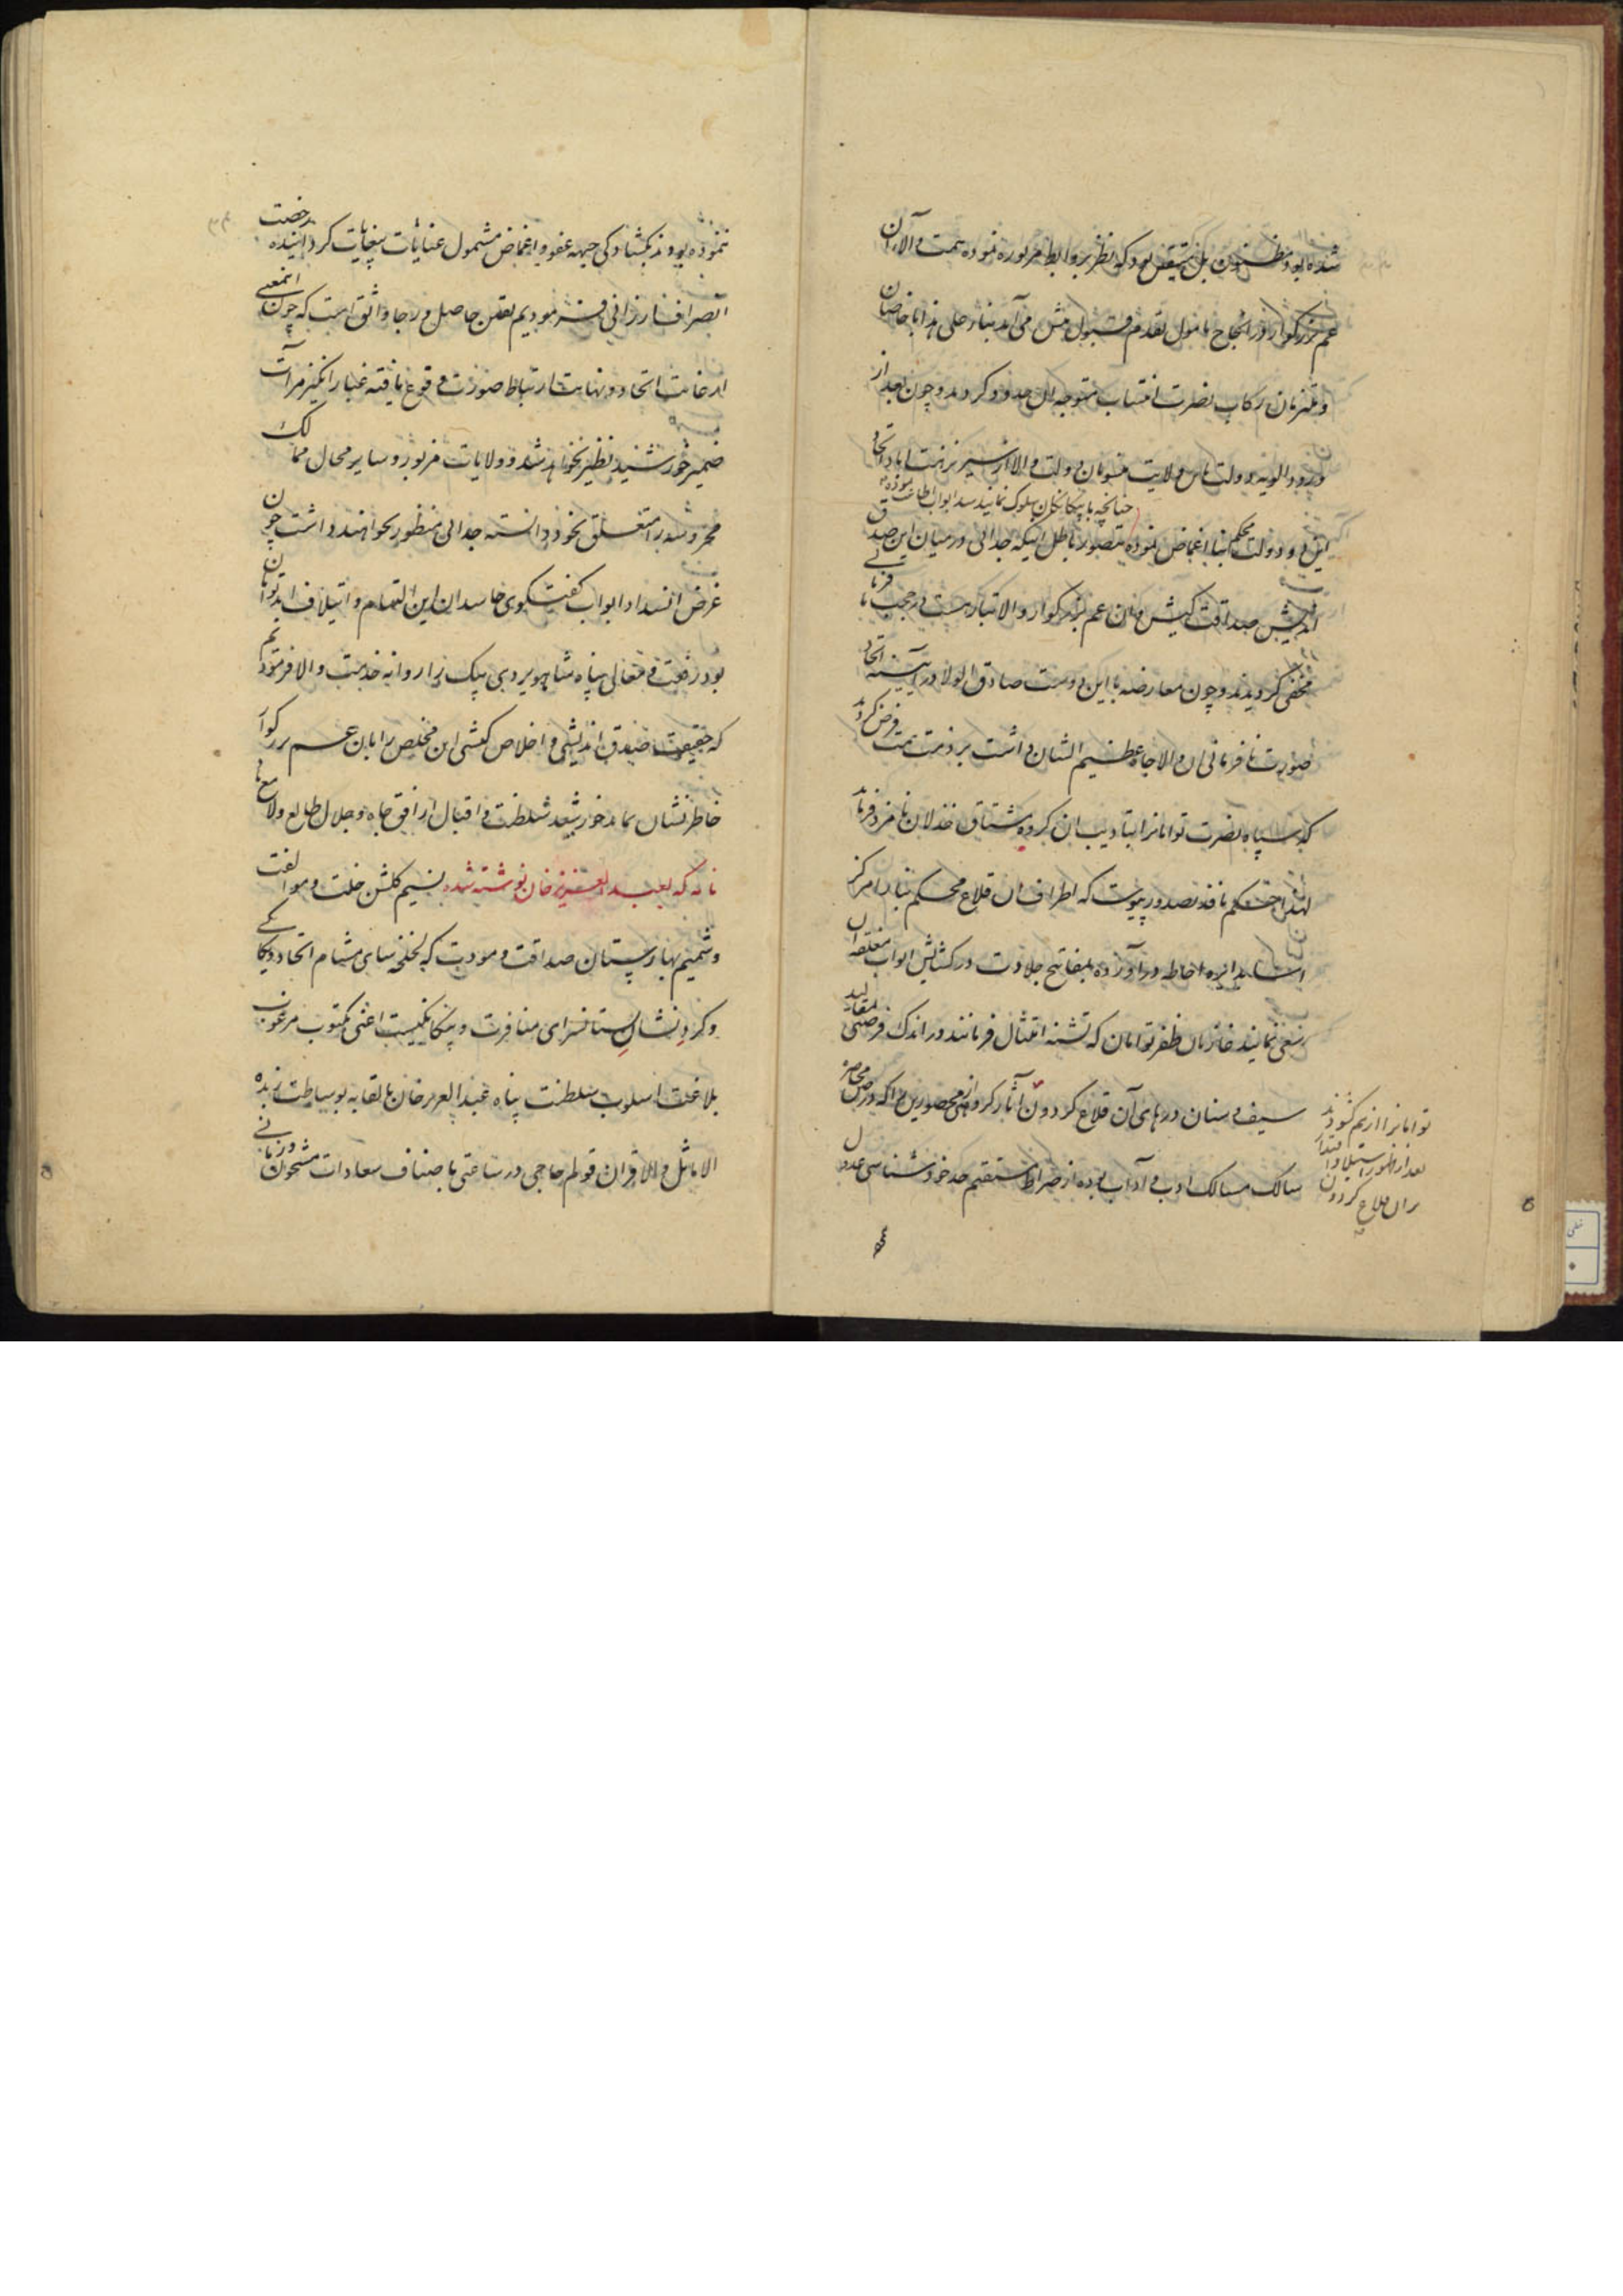 شده بود مظنون بل متیقن بود که نظر بر روابط مزبوره نموده همت والای آن
عم بزرگوار در انجاح مامول تقدم قبول پیش می‌آید بنابر علی هذا با خاصان
و ملتزمان رکاب نصرت انتساب متوجه آن حدود گردید و چون بعد از
ورود الویه دولت باس ولایت منسوبان دولت والا از
چنانچه با بیگانگان سلوک نمایند سد ابواب اطاعت نموده
این دو دولت محکم بنا اغماض نموده بتصور باطل اینکه جدائی در میان این صدق
اندیش صداقت کیش و آن عم بزرگوار والاتبار هست در حجب نافرمانی
مخفی گردیدند و چون معارضه با این دوست صادق الولا در آیینه اتحاد
صورت نافرمانی آن والاجاه عظیم الشان داشت بر ذمت همت فرض گردید
که سپاه نصرت توامانرا بتادیب آن گروه خذلان نامزد فرماید
لهذا حکم نافذ بصدور پیوست که اطراف آن قلاع محکم بنا را مرکز
آسا بدایره احاطه درآورده بمفاتیح جلادت در گشایش ابواب مغلقه آن
سعی نمایند غازیان ظفر توامان که تشنه امتثال فرمانند در اندک فرصتی بمقالید
سیف و سنان درهای آن قلاع گردون آثار گروهی از محصورین را که در حین محاصره
توامانرا از هم گشودند
بعد از ظهور استیلا و اقتدار
بران قلاع گردون
سالک مسالک ادب و آداب بوده از صراط مستقیم حد خود شناسی عدول
ننموده بودند بگشادگی جبهه عفو و اغماض مشمول عنایات بیغایات گردانیده رخصت
انصراف ارزانی فرمودیم یقین حاصل و رجا واثق است که چون اینمعنی
از غایت اتحاد و نهایت ارتباط صورت وقوع یافته غبارانگیز مرآت
ضمیر خورشید نظیر نخواهد شد و ولایات مزبور و سایر محال ممالک
محروسه را متعلق بخود دانسته جدائی منظور نخواهند داشت چون
غرض انسداد ابواب گفتگوی حاسدان این التیام و ایتلاف ابد توامان
بود رفعت و معالی پناه شاهویردی بیک را روانه خدمت والا فرمودیم
که حقیقت صدق اندیشی و اخلاص کیشی این مخلص را بان عم بزرگوار
خاطر نشان نماید خورشید سلطنت و اقبال از افق جاه و جلال طالع ولامع باد
نامه که بعبد العزیز خان نوشته شده نسیم گلشن خلت و موالفت
و شمیم بهارستان صداقت و مودت که لخلخه سای مشام اتحاد و یگانگی
و گرد نشان بستانسرای منافرت و بیگانگیست اعنی مکتوب مرغوب
بلاغت اسلوب سلطنت پناه عبد العزیز خان بالقابه بوساطت زبده
الاماثل و الاقران قوطم حاجی در ساعتی باصناف سعادات مشحون و زمانی